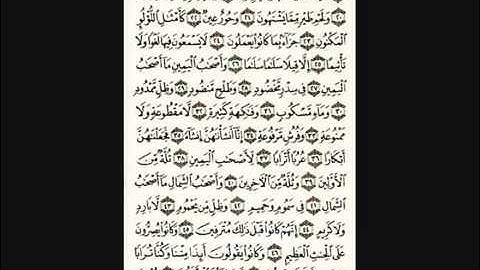 ﴿٢٠﴾ وَلَحْمِ طَيْرٍ مِّمَّا يَشْتَهُونَ ﴿٢١﴾ وَحُورٌ عِينٌ ﴿٢٢﴾ كَأَمْثَٰلِ ٱللُّؤْلُؤِ
ٱلْمَكْنُونِ ﴿٢٣﴾ جَزَآءًۢ بِمَا كَانُوا۟ يَعْمَلُونَ ﴿٢٤﴾ لَا يَسْمَعُونَ فِيهَا لَغْوًا وَلَا
تَأْثِيمًا ﴿٢٥﴾ إِلَّا قِيلًا سَلَٰمًا سَلَٰمًا ﴿٢٦﴾ وَأَصْحَٰبُ ٱلْيَمِينِ مَآ أَصْحَٰبُ
ٱلْيَمِينِ ﴿٢٧﴾ فِى سِدْرٍ مَّخْضُودٍ ﴿٢٨﴾ وَطَلْحٍ مَّنضُودٍ ﴿٢٩﴾ وَظِلٍّ مَّمْدُودٍ
﴿٣٠﴾ وَمَآءٍ مَّسْكُوبٍ ﴿٣١﴾ وَفَٰكِهَةٍ كَثِيرَةٍ ﴿٣٢﴾ لَّا مَقْطُوعَةٍ وَلَا
مَمْنُوعَةٍ ﴿٣٣﴾ وَفُرُشٍ مَّرْفُوعَةٍ ﴿٣٤﴾ إِنَّآ أَنشَأْنَٰهُنَّ إِنشَآءً ﴿٣٥﴾ فَجَعَلْنَٰهُنَّ
أَبْكَارًا ﴿٣٦﴾ عُرُبًا أَتْرَابًا ﴿٣٧﴾ لِّأَصْحَٰبِ ٱلْيَمِينِ ﴿٣٨﴾ ثُلَّةٌ مِّنَ
ٱلْأَوَّلِينَ ﴿٣٩﴾ وَثُلَّةٌ مِّنَ ٱلْءَاخِرِينَ ﴿٤٠﴾ وَأَصْحَٰبُ ٱلشِّمَالِ مَآ أَصْحَٰبُ
ٱلشِّمَالِ ﴿٤١﴾ فِى سَمُومٍ وَحَمِيمٍ ﴿٤٢﴾ وَظِلٍّ مِّن يَحْمُومٍ ﴿٤٣﴾ لَّا بَارِدٍ
وَلَا كَرِيمٍ ﴿٤٤﴾ إِنَّهُمْ كَانُوا۟ قَبْلَ ذَٰلِكَ مُتْرَفِينَ ﴿٤٥﴾ وَكَانُوا۟ يُصِرُّونَ
عَلَى ٱلْحِنثِ ٱلْعَظِيمِ ﴿٤٦﴾ وَكَانُوا۟ يَقُولُونَ أَئِذَا مِتْنَا وَكُنَّا تُرَابًا